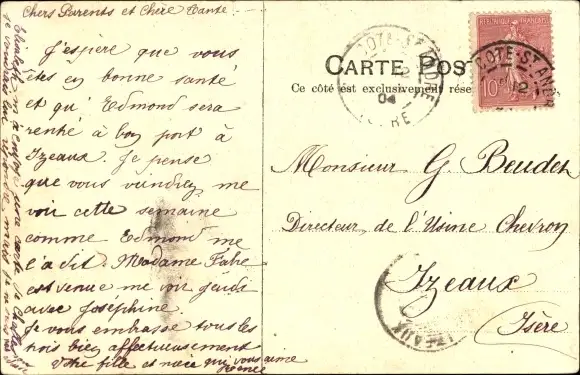 Chers Parents et Chère Tante :
J'espère que vous
êtes en bonne santé
et qu' Edmond sera
rentré à bon port à
Izeaux. Je pense
que vous viendrez me
voir cette semaine
comme Edmond me
l'a dit. Madame Fabre
est venue me voir jeudi
avec Joséphine.
Je vous embrasse tous les
trois bien affectueusement
Votre fille et nièce qui vous aime
CARTE POS
Ce côté est exclusivement rése
RÉPUBLIQUE FRANÇAISE
10
COTE-ST-ANDRE
04
ISERE
COTE-ST-ANDR
Monsieur G. Beudet
Directeur de l'Usine Chevron
Izeaux
(Isère)
IZEAUX